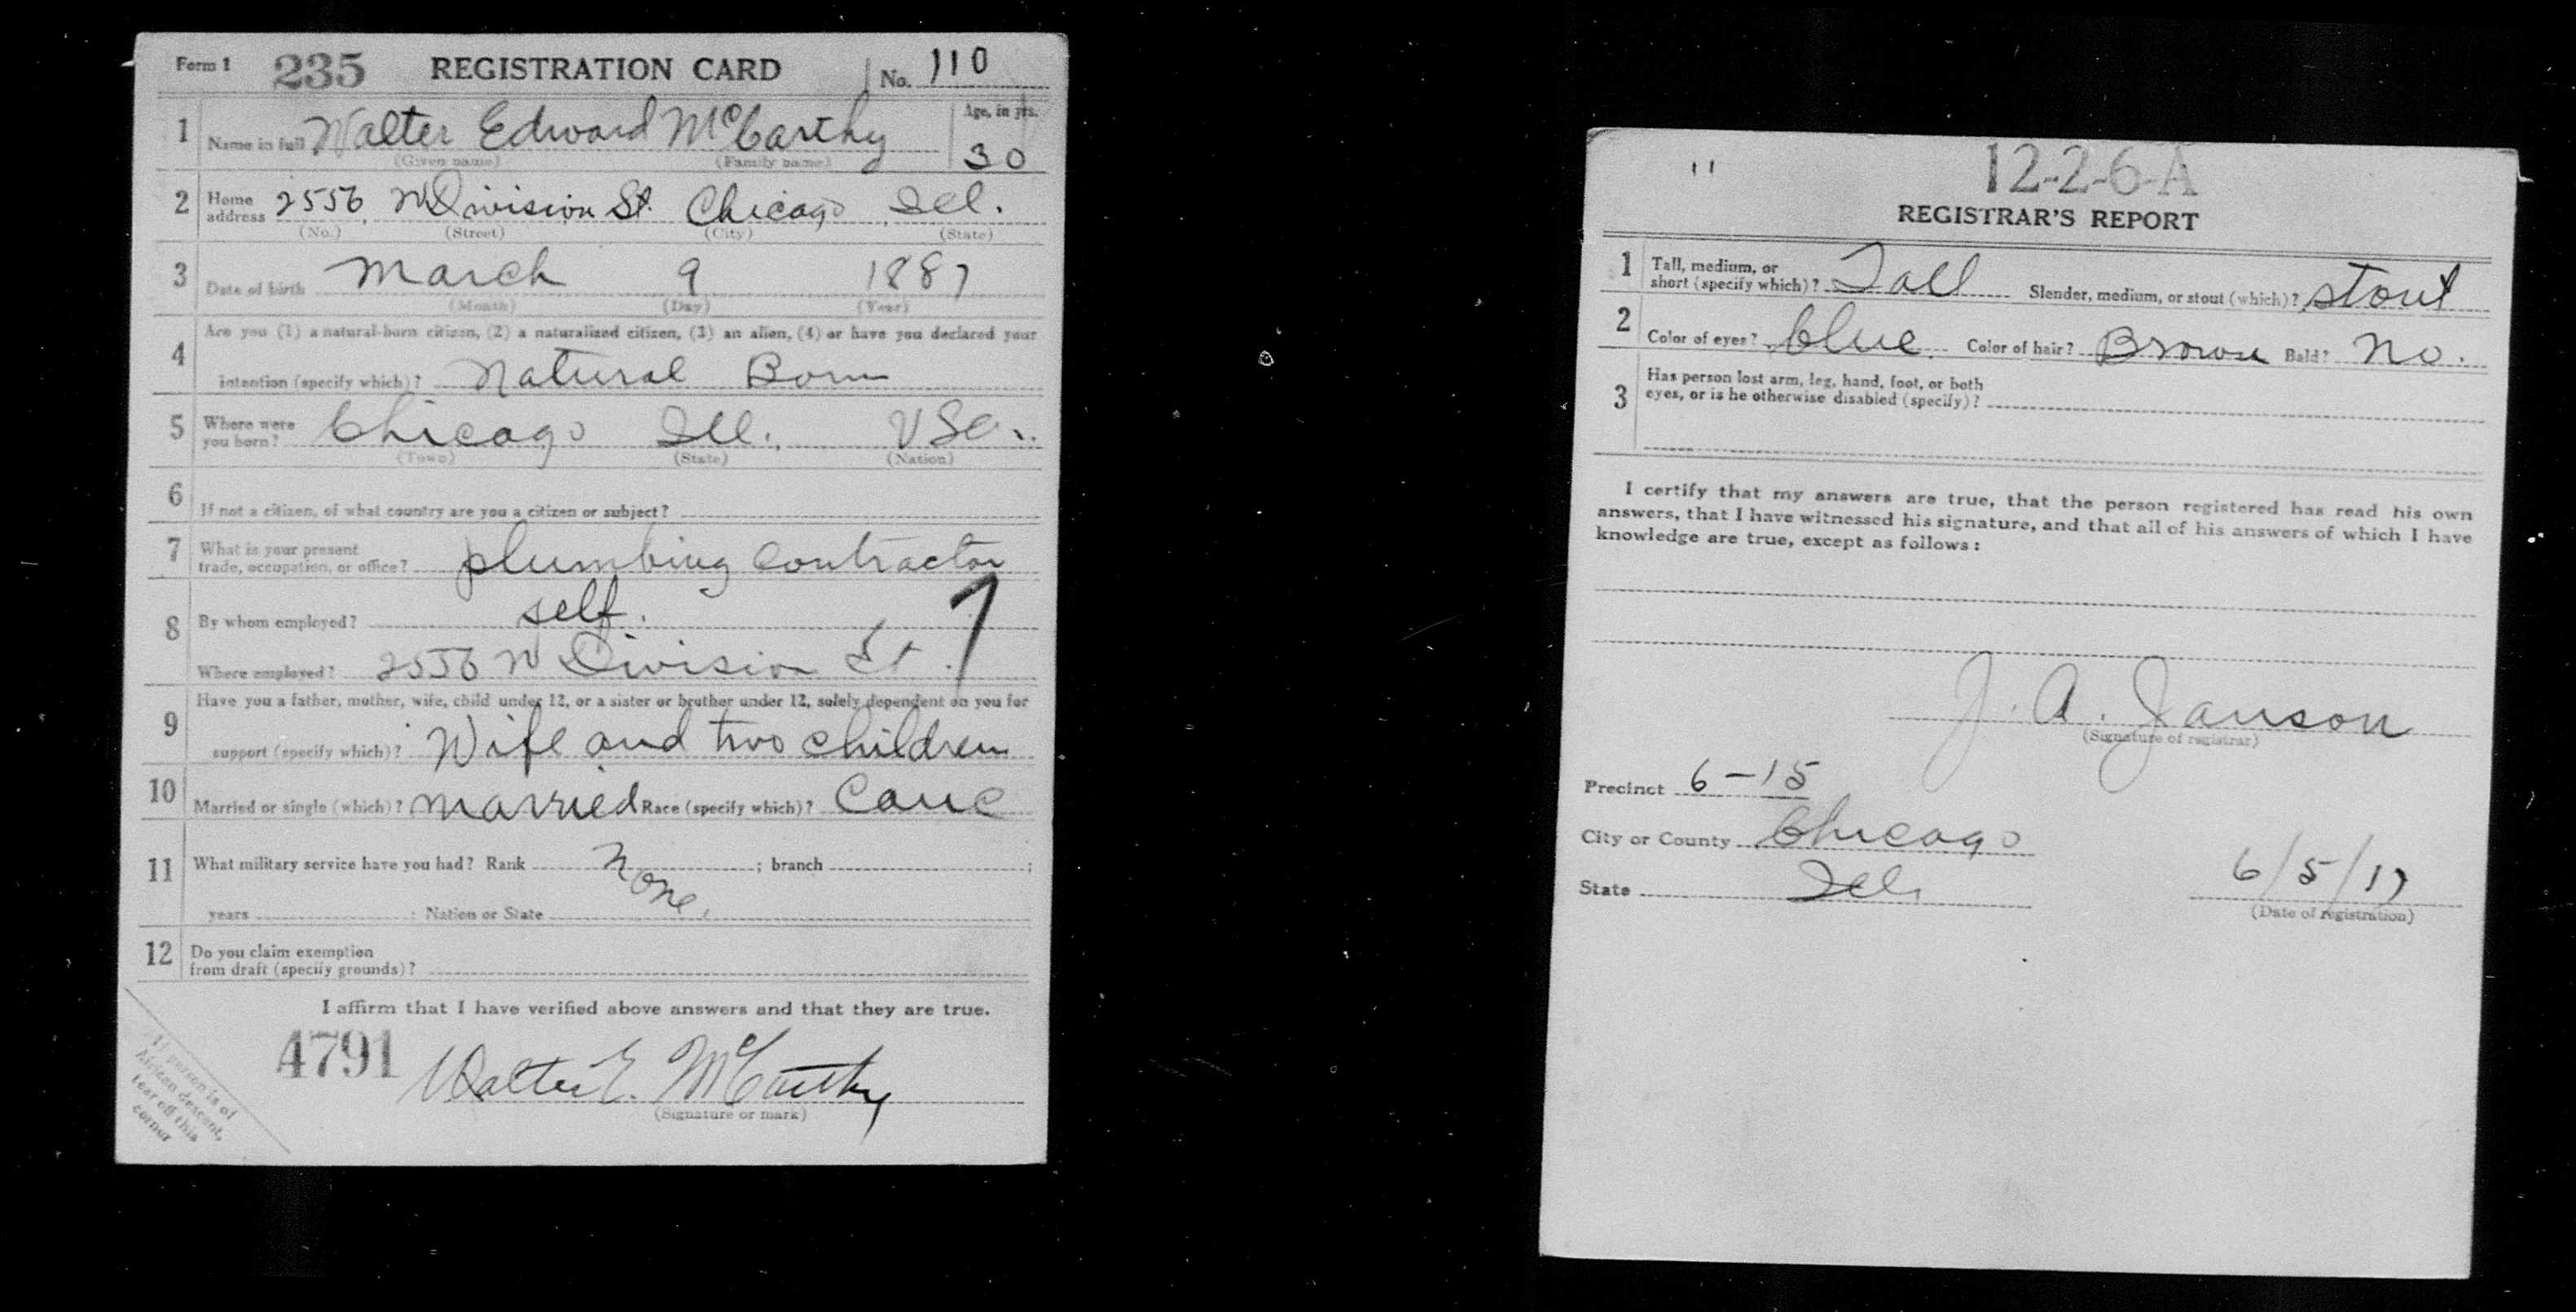 Form 1 235 REGISTRATION CARD No. 110
1 Name in full Walter Edward McCarthy Age, in yrs. 30
(Given name) (Family name)
2 Home address 2556 W Division St. Chicago Ill.
(No.) (Street) (City) (State)
3 Date of birth March 9 1887
(Month) (Day) (Year)
4 Are you (1) a natural-born citizen, (2) a naturalized citizen, (3) an alien, (4) or have you declared your
intention (specify which)? Natural Born
5 Where were you born? Chicago Ill. USA.
(Town) (State) (Nation)
6 If not a citizen, of what country are you a citizen or subject?
7 What is your present trade, occupation, or office? plumbing Contractor
8 By whom employed? self.
Where employed? 2556 W Division St. 7
9 Have you a father, mother, wife, child under 12, or a sister or brother under 12, solely dependent on you for
support (specify which)? Wife and two children
10 Married or single (which)? married Race (specify which)? Cauc
11 What military service have you had? Rank none ; branch ;
years ; Nation or State
12 Do you claim exemption
from draft (specify grounds)?
I affirm that I have verified above answers and that they are true.
4791 Walter E. McCarthy
(Signature or mark)
If person is of
African descent,
tear off this
corner
11 12-2-6-A
REGISTRAR'S REPORT
1 Tall, medium, or short (specify which)? Tall Slender, medium, or stout (which)? stout
2 Color of eyes? blue. Color of hair? Brown Bald? No.
3 Has person lost arm, leg, hand, foot, or both
eyes, or is he otherwise disabled (specify)?
I certify that my answers are true, that the person registered has read his own
answers, that I have witnessed his signature, and that all of his answers of which I have
knowledge are true, except as follows:
J. A. Janson
(Signature of registrar)
Precinct 6-15
City or County Chicago
State Ill. 6/5/17
(Date of registration)